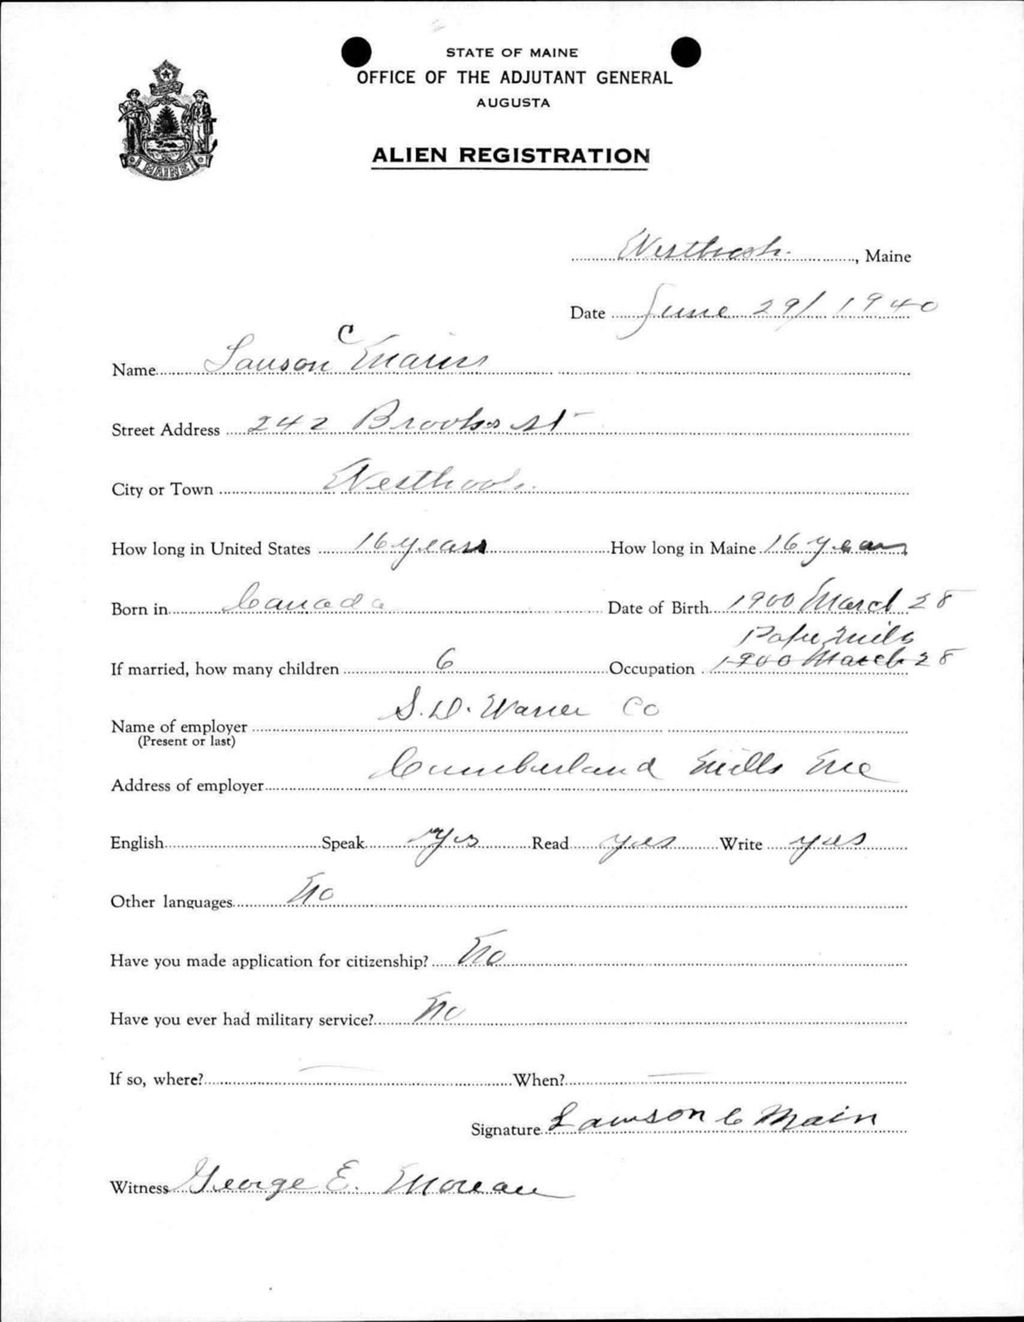 STATE OF MAINE
OFFICE OF THE ADJUTANT GENERAL
AUGUSTA
ALIEN REGISTRATION
MAINE
Westbrook, Maine
Date June 29/ 1940
Name Lawson C Mains
Street Address 242 Brook St
City or Town Westbrook
How long in United States 16 years How long in Maine 16 years
Born in Canada Date of Birth 1900 March 28
Paper Mills
If married, how many children 6 Occupation 1900 March 28
Name of employer S. D. Warren Co
(Present or last)
Address of employer Cumberland Mills Me
English Speak yes Read yes Write yes
Other languages No
Have you made application for citizenship? No
Have you ever had military service? No
If so, where? When?
Signature Lawson C Main
Witness George E. Moreau